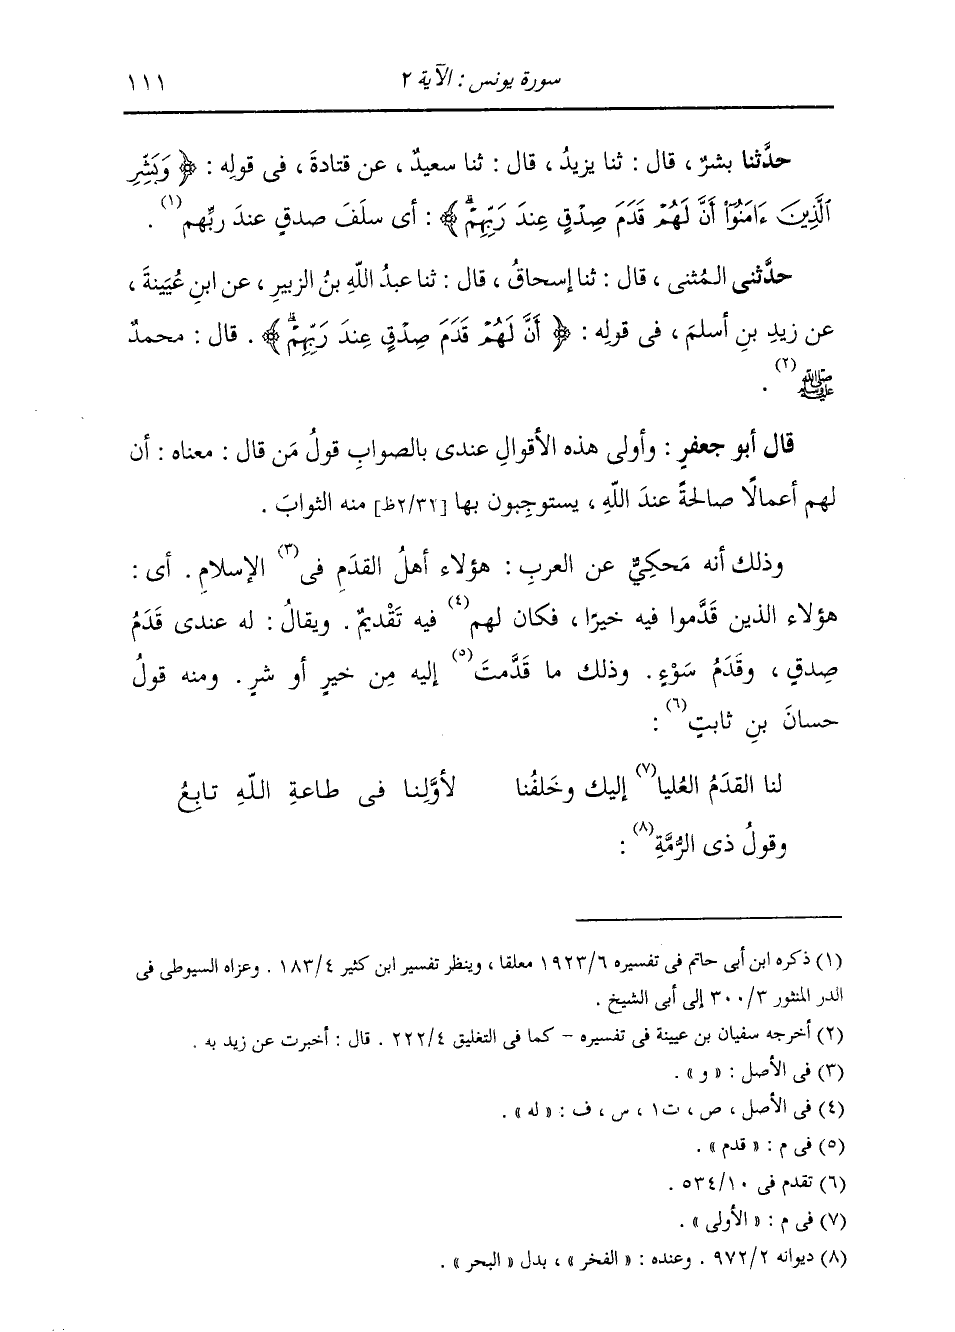 سورة يونس : الآية ٢ ١١١
حدَّثنا بشرٌ ، قال : ثنا يزيدُ ، قال : ثنا سعيدٌ ، عن قتادةَ ، فى قولِه : ﴿ وَبَشِّرِ
ٱلَّذِينَ ءَامَنُوٓا۟ أَنَّ لَهُمْ قَدَمَ صِدْقٍ عِندَ رَبِّهِمْ ۗ ﴾ : أى سلَفَ صدقٍ عندَ ربِّهم (١) .
حدَّثنى المُثنى ، قال : ثنا إسحاقُ ، قال : ثنا عبدُ اللَّهِ بنُ الزبيرِ ، عن ابنِ عُيَينةَ ،
عن زيدِ بنِ أسلمَ ، فى قولِه : ﴿ أَنَّ لَهُمْ قَدَمَ صِدْقٍ عِندَ رَبِّهِمْ ۗ ﴾ . قال : محمدٌ
ﷺ (٢) .
قال أبو جعفرٍ : وأولى هذه الأقوالِ عندى بالصوابِ قولُ مَن قال : معناه : أن
لهم أعمالًا صالحةً عندَ اللَّهِ ، يستوجِبون بها [٢/٣٢ظ] منه الثوابَ .
وذلك أنه مَحكِيٌّ عن العربِ : هؤلاء أهلُ القدَمِ فى (٣) الإسلامِ . أى :
هؤلاء الذين قَدَّموا فيه خيرًا ، فكان لهم (٤) فيه تَقْديمٌ . ويقالُ : له عندى قَدَمُ
صِدقٍ ، وقَدَمُ سَوْءٍ . وذلك ما قَدَّمتَ (٥) إليه مِن خيرٍ أو شرٍ . ومنه قولُ
حسانَ بنِ ثابتٍ (٦) :
لنا القدَمُ العُليا (٧) إليك وخَلفُنا لأوَّلِنا فى طاعةِ اللَّهِ تابِعُ
وقولُ ذى الرُّمَّةِ (٨) :
(١) ذكره ابن أبى حاتم فى تفسيره ١٩٢٣/٦ معلقا ، وينظر تفسير ابن كثير ١٨٣/٤ . وعزاه السيوطى فى
الدر المنثور ٣٠٠/٣ إلى أبى الشيخ .
(٢) أخرجه سفيان بن عيينة فى تفسيره - كما فى التغليق ٢٢٢/٤ . قال : أخبرت عن زيد به .
(٣) فى الأصل : « و » .
(٤) فى الأصل ، ص ، ت١ ، س ، ف : « له » .
(٥) فى م : « قدم » .
(٦) تقدم فى ٥٣٤/١٠ .
(٧) فى م : « الأولى » .
(٨) ديوانه ٩٧٢/٢ . وعنده : « الفخر » ، بدل « البحر » .